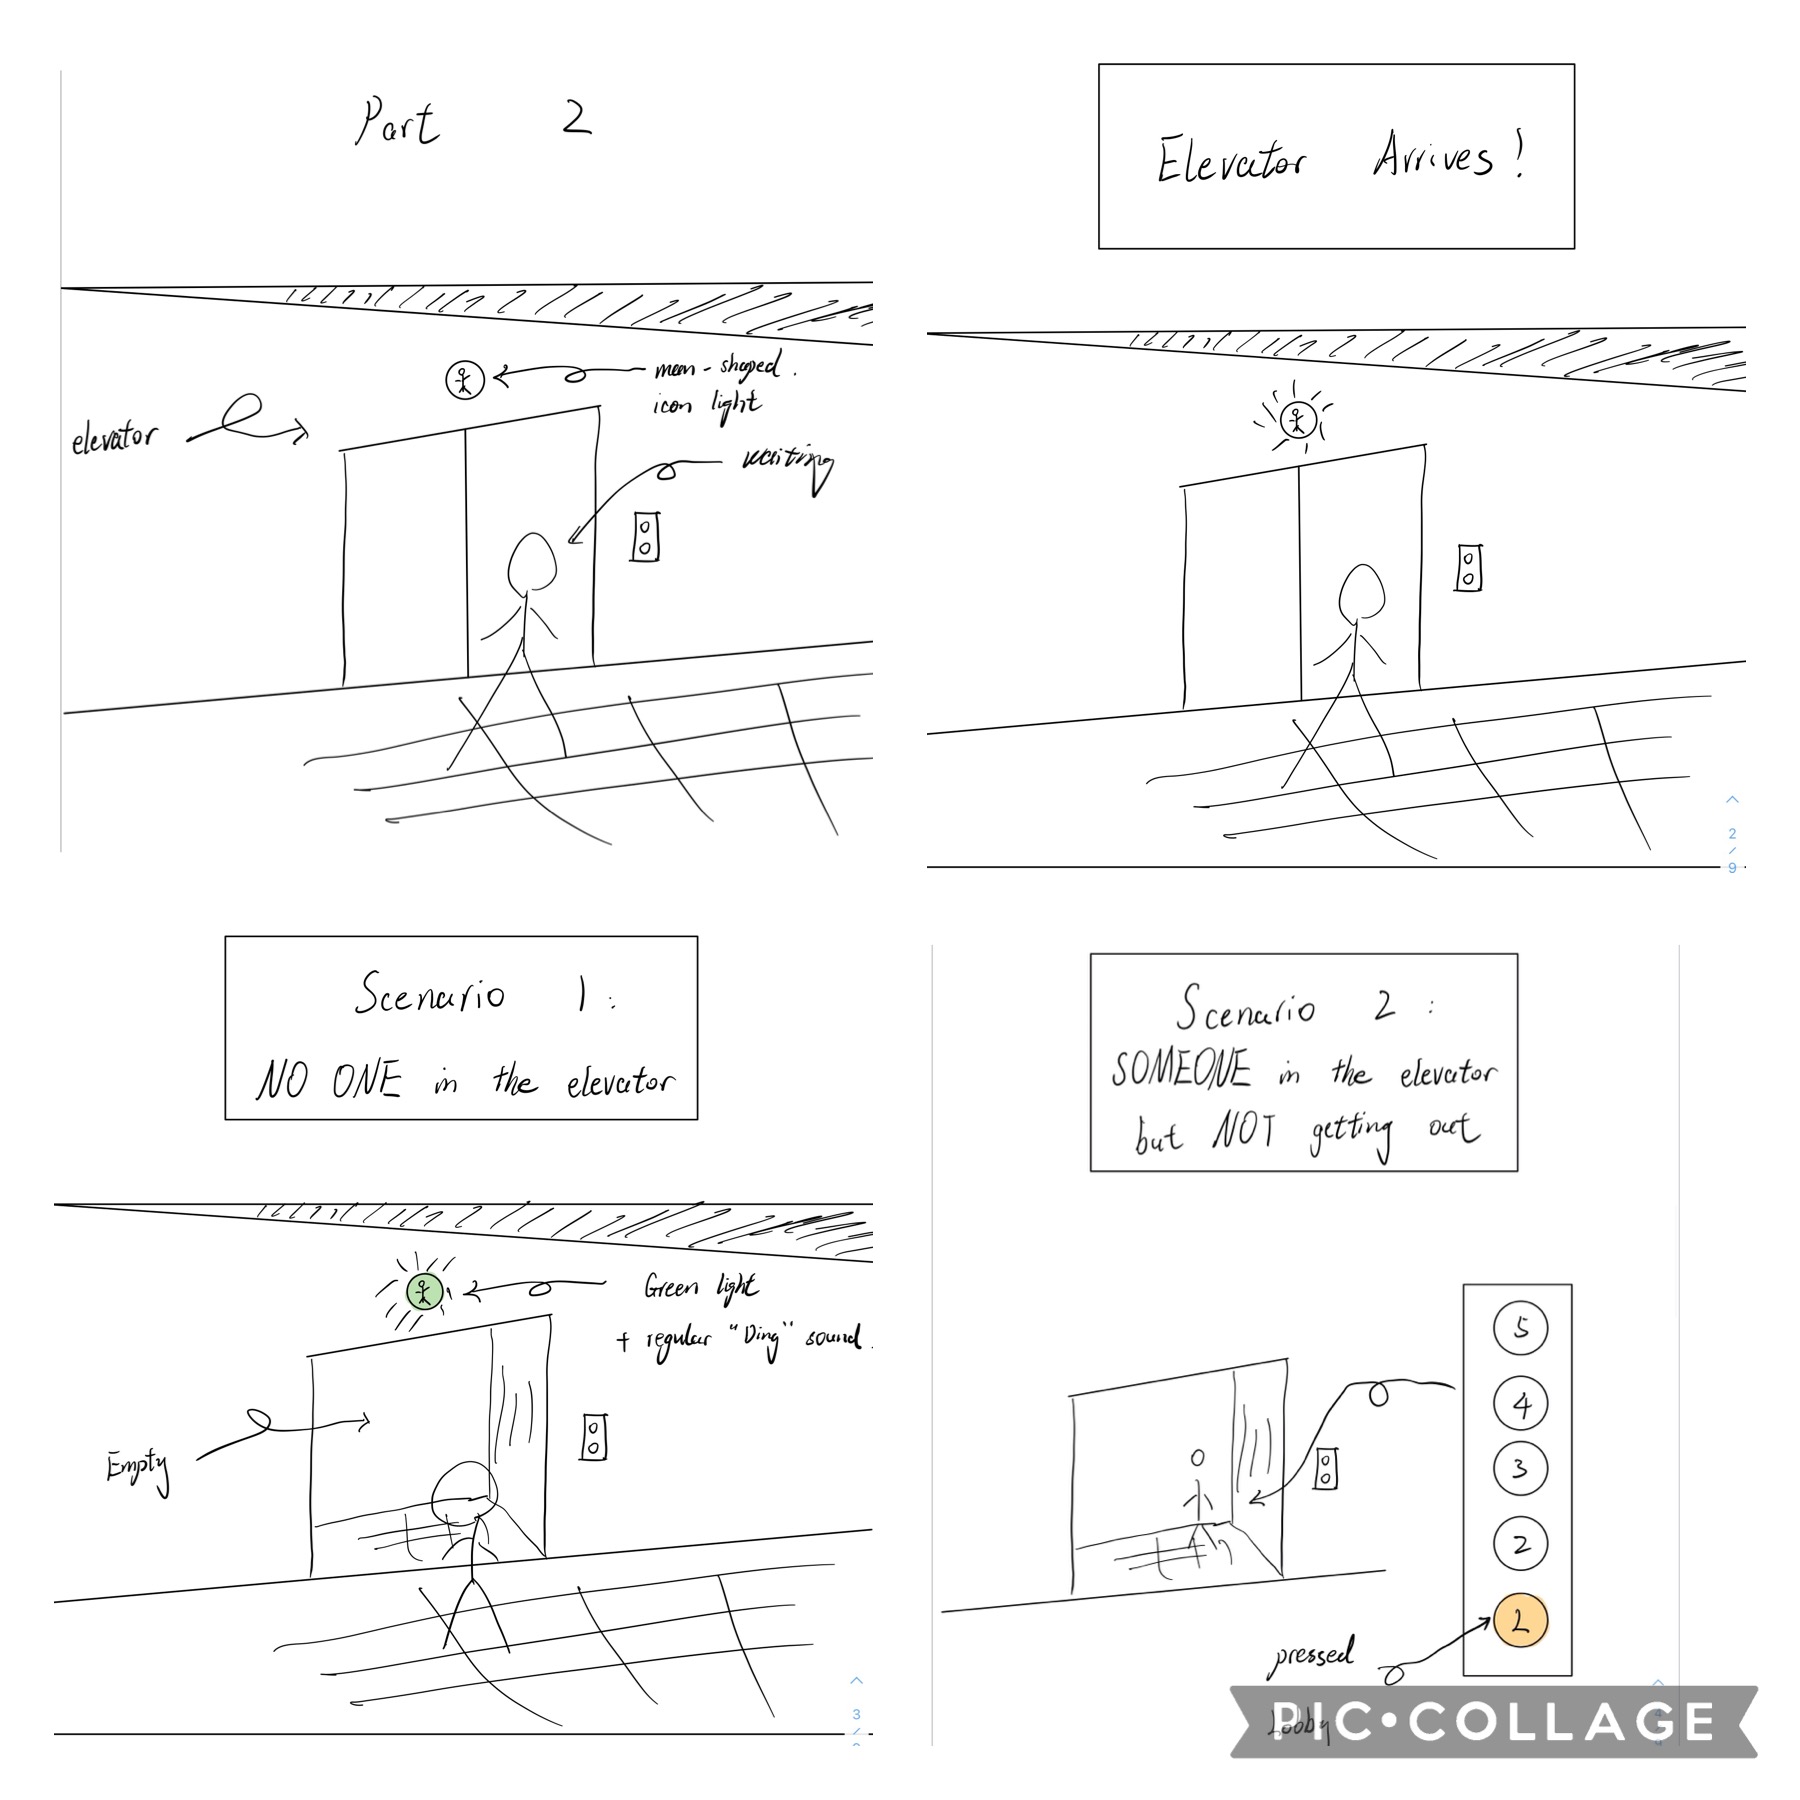 Part 2
man-shaped.
icon light
elevator
waiting
Elevator Arrives!
2
/
9
Scenario 1:
NO ONE in the elevator
Green light
+ regular "Ding" sound.
Empty
3
/
Scenario 2:
SOMEONE in the elevator
but NOT getting out
5
4
3
2
L
pressed
Lobby
PIC•COLLAGE